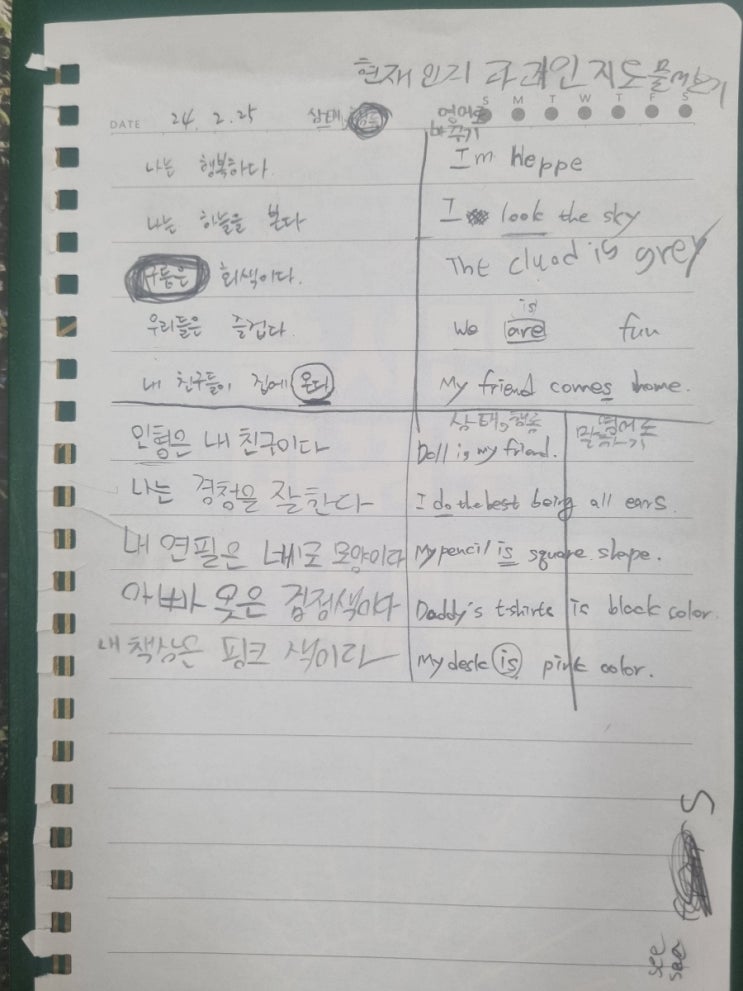 현재 인지 과거인 지도 물어보기
DATE 24. 2. 25 상태, 행동 영어로 바꾸기 S M T W T F S
나는 행복하다. I'm Heppe
나는 하늘을 본다 I look the sky
구름은 회색이다. The cluod is grey
is
우리들은 즐겁다. We are fun
내 친구들이 집에 온다 My friend comes home.
상태, 행동 영어로 말하기
인형은 내 친구이다 Doll is my friend.
나는 경청을 잘한다 I do the best being all ears.
내 연필은 네모 모양이다 My pencil is square shape.
아빠 옷은 검정색이다 Daddy's t-shirts is black color.
내 책상은 핑크 색이다 My desk is pink color.
S
see
see